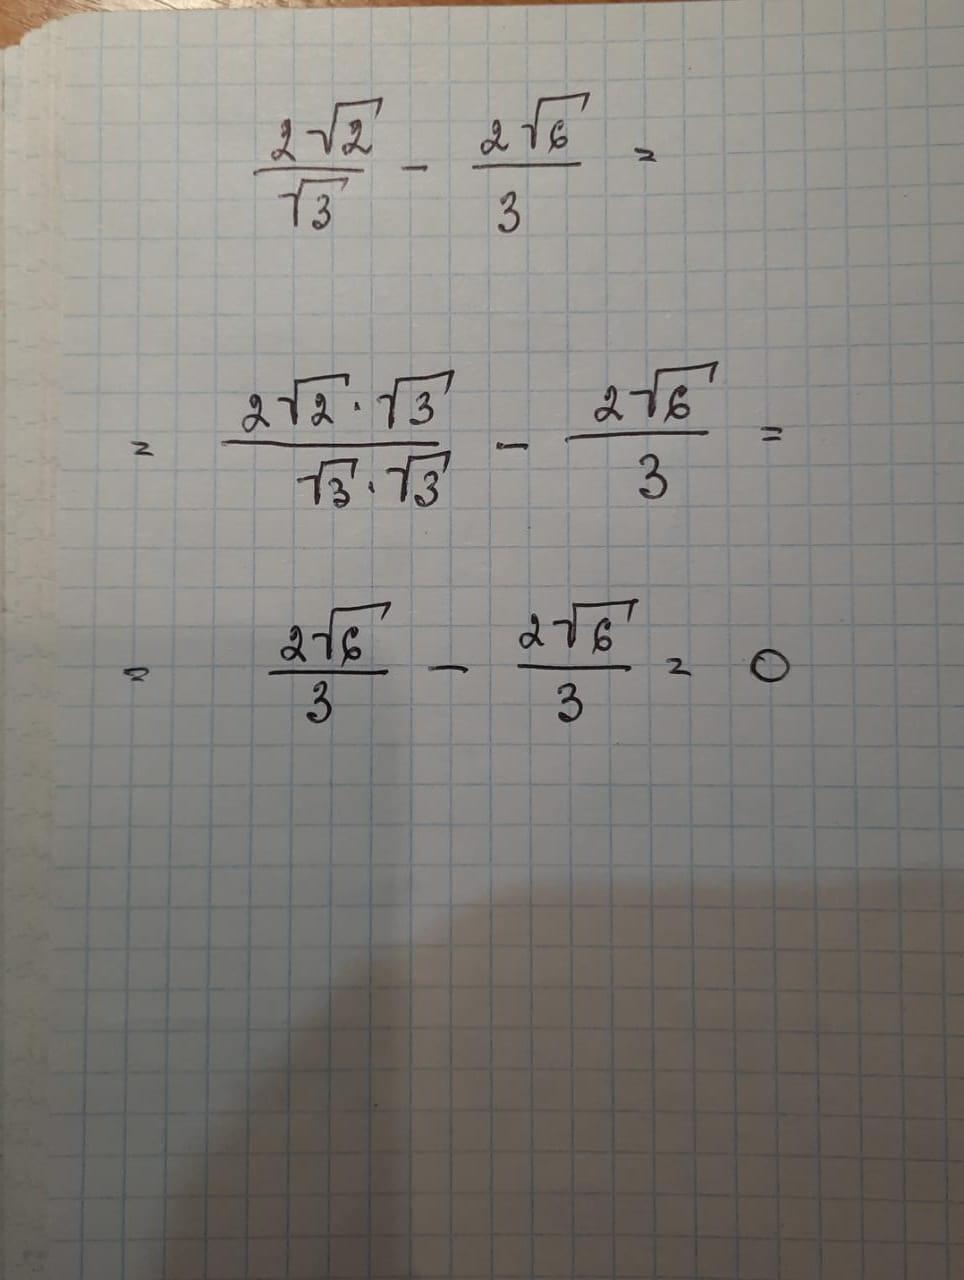 2√2/√3 - 2√6/3 =
= 2√2·√3/√3·√3 - 2√6/3 =
= 2√6/3 - 2√6/3 = 0